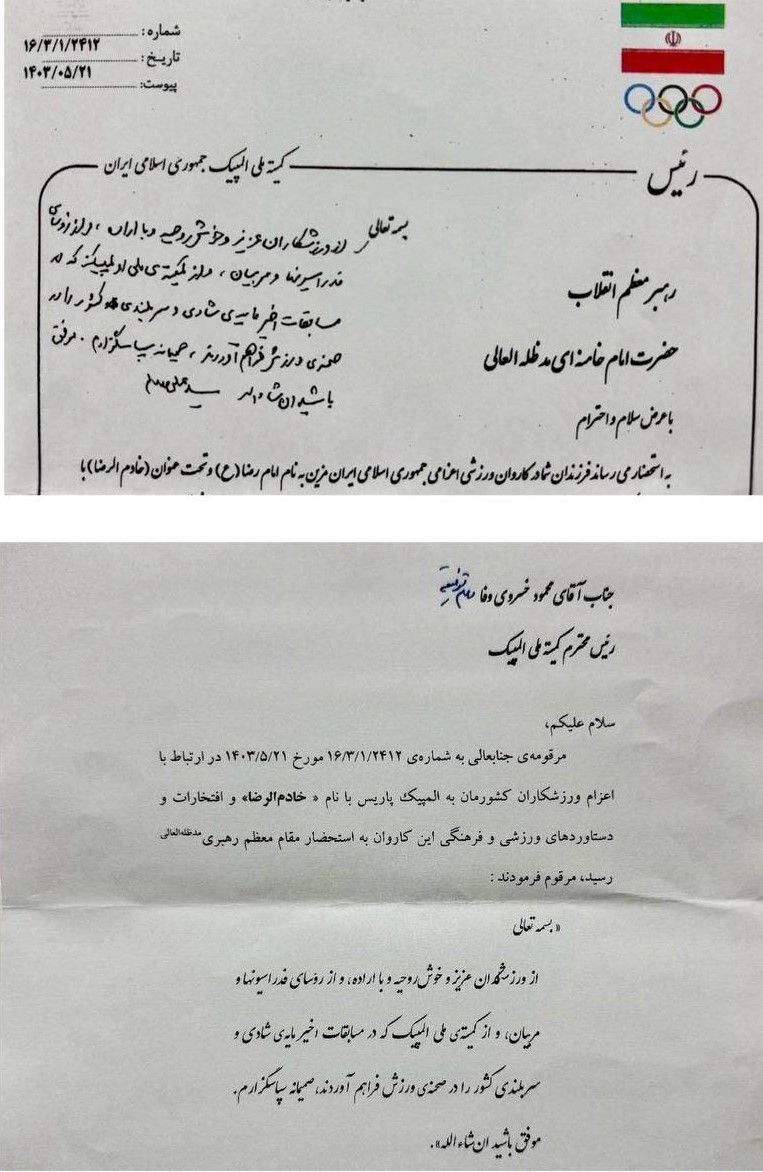 شماره:
۱۶/۳/۱/۲۴۱۲
تاریخ:
۱۴۰۳/۰۵/۲۱
پیوست:
رئیس
کمیته ملی المپیک جمهوری اسلامی ایران
بسمه تعالی
از ورزشکاران عزیز و خوش روحیه و با اراده، و از رؤسای
فدراسیونها و مربیان، و از کمیته‌ی ملی المپیک که در
مسابقات اخیر مایه‌ی شادی و سربلندی کشور را در
صحنه‌ی ورزش فراهم آوردند، صمیمانه سپاسگزارم. موفق
باشید ان شاء الله
رهبر معظم انقلاب
حضرت امام خامنه ای مدظله العالی
با عرض سلام و احترام
به استحضار می رساند فرزندان شما در کاروان ورزشی اعزامی جمهوری اسلامی ایران مزین به نام امام رضا (ع) و تحت عنوان (خادم الرضا) با
جناب آقای محمود خسروی وفا دام توفیقه
رئیس محترم کمیته ملی المپیک
سلام علیکم،
مرقومه‌ی جنابعالی به شماره‌ی ۱۶/۳/۱/۲۴۱۲ مورخ ۱۴۰۳/۵/۲۱ در ارتباط با
اعزام ورزشکاران کشورمان به المپیک پاریس با نام « خادم‌الرضا» و افتخارات و
دستاوردهای ورزشی و فرهنگی این کاروان به استحضار مقام معظم رهبری مدظله‌العالی
رسید، مرقوم فرمودند :
« بسمه تعالی
از ورزشکاران عزیز و خوش روحیه و با اراده، و از رؤسای فدراسیونها و
مربیان، و از کمیته‌ی ملی المپیک که در مسابقات اخیر مایه‌ی شادی و
سربلندی کشور را در صحنه‌ی ورزش فراهم آوردند، صمیمانه سپاسگزارم.
موفق باشید ان شاء الله».